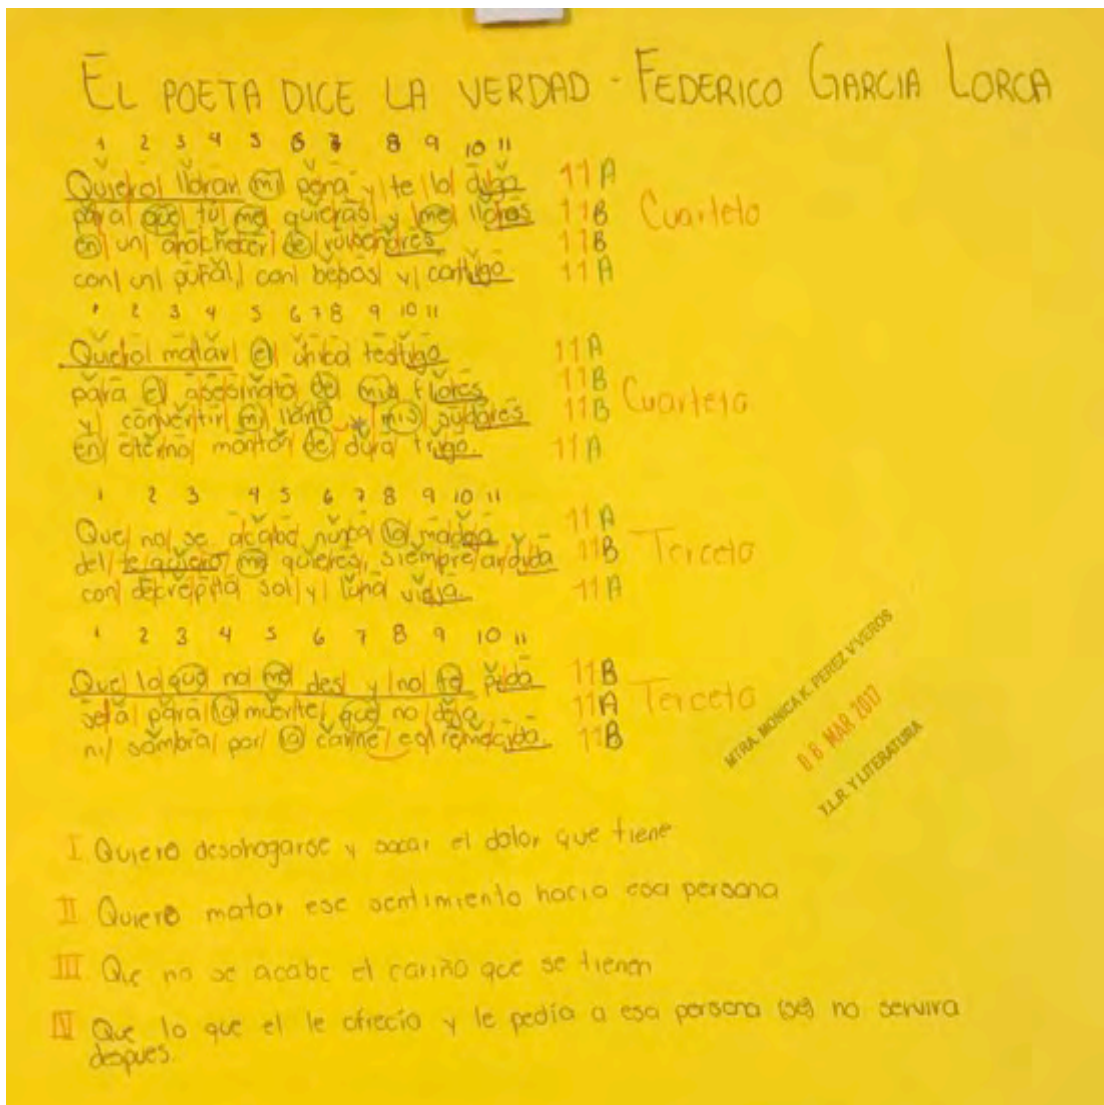 EL POETA DICE LA VERDAD - FEDERICO GARCIA LORCA
1 2 3 4 5 6 7 8 9 10 11
Quiero llorar mi pena y te lo digo 11A
para que tú me quieras y me llores 11B Cuarteto
en un anochecer de ruiseñores 11B
con un puñal, con besos y contigo. 11A
1 2 3 4 5 6 7 8 9 10 11
Quiero matar el único testigo 11A
para el asesinato de mis flores 11B
y convertir mi llanto y mis sudores 11B Cuarteto
en eterno montón de duro trigo. 11A
1 2 3 4 5 6 7 8 9 10 11
Que no se acabe nunca la madeja 11A
del te quiero me quieres, siempre ardida 11B Terceto
con decrépito sol y luna vieja. 11A
1 2 3 4 5 6 7 8 9 10 11
Que lo que no me des y no te pida 11B
será para la muerte, que no deja 11A Terceto
ni sombra por la carne estremecida. 11B
MTRA. MONICA K. PEREZ VIVEROS
06 MAR 2017
T.L.R. Y LITERATURA
I Quiere desahogarse y sacar el dolor que tiene
II Quiere matar ese sentimiento hacia esa persona
III Que no se acabe el cariño que se tienen
IV Que lo que el le ofrecío y le pedía a esa persona no servira
despues.